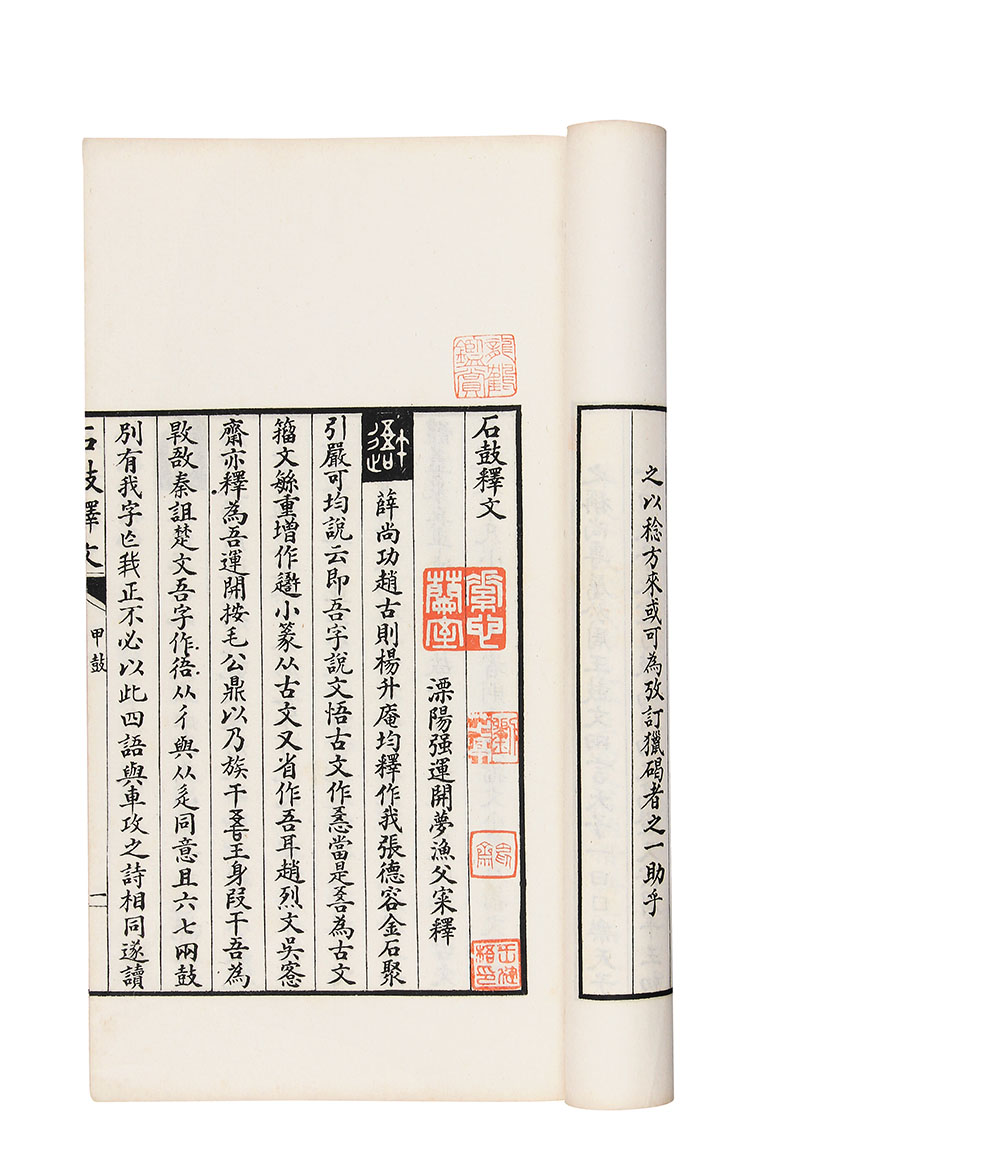 之以稔方來或可為攷訂獵碣者之一助乎
石鼓釋文
溧陽强運開夢漁父寀釋
薛尚功趙古則楊升庵均釋作我張德容金石聚
引嚴可均說云即吾字說文悟古文作㦖當是𠮣為古文
籀文緐重增作遻小篆从古文又省作吾耳趙烈文吳愙
齋亦釋為吾運開按毛公鼎以乃族干吾王身叚干吾為
敔秦詛楚文吾字作𢓲从彳與从辵同意且六七兩鼓
別有我字㠯我正不必以此四語與車攻之詩相同遂讀
石鼓釋文
甲鼓
一
龍鶴鑑賞